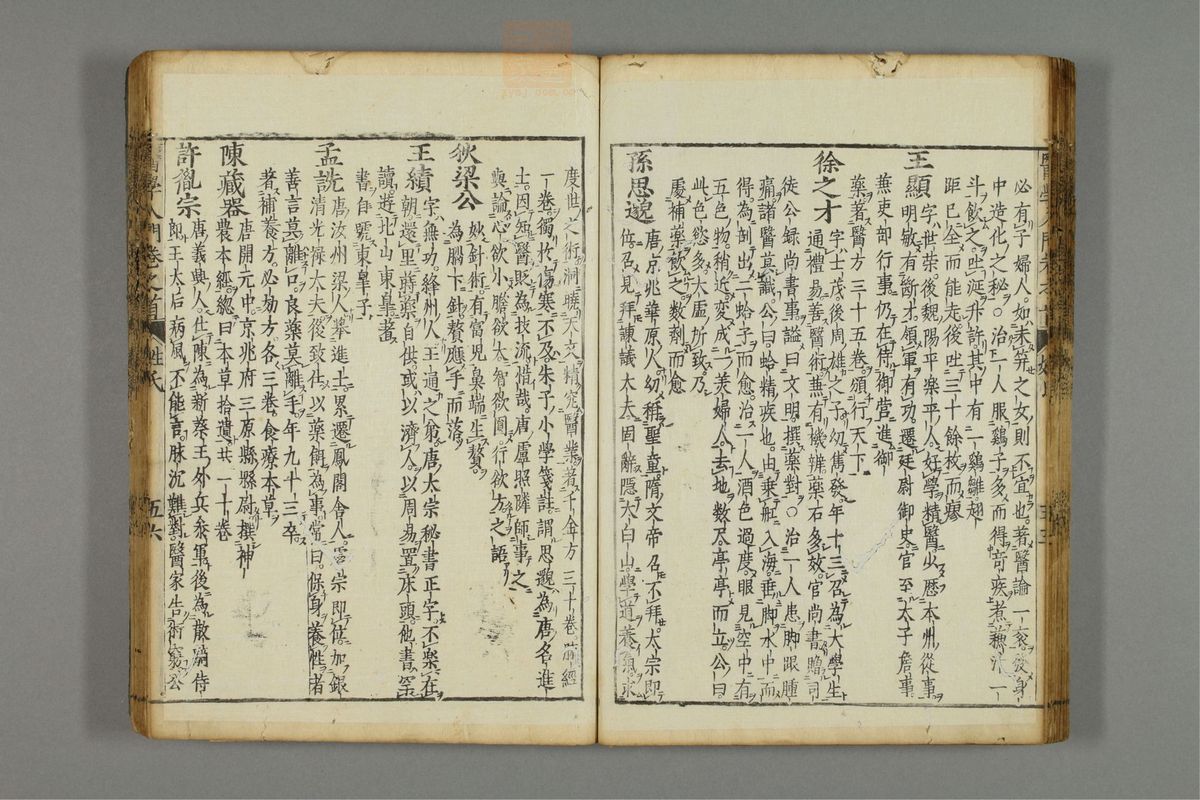 必有子婦人如未笄之女則不宜也著醫論一
中造化之秘○治一人服鷄子多而得奇疾煮蘓汁一
斗飲之吐涎升許其中有一鷄雛翅
距已全而能走後吐三十餘枚而瘳
王顯
字世榮後魏陽平樂平人好學精醫少歷本州從事
明敏有斷才領軍有功遷廷尉御史官至太子詹事
兼吏部行事仍在侍御営進御
藥著醫方三十五卷頒行天下
徐之才
字士茂後周雄之子幼雋發年十三召為大學生
通禮易善醫術兼有機辨藥石多效官尚書贈司
徒公録尚書事謚曰文明撰藥對○治一人患脚跟腫
痛諸醫莫識公曰蛤精疾也由乗舡入海垂脚水中而
得為剖出二蛤子而愈治一人酒色過度眼見空中有
五色物稍近変成一美婦人去地數尺亭亭而立公曰
此色慾多大虛所致乃
處補藥飲之數劑而愈
孫思邈
唐京兆華原人幼稱聖童隋文帝召不拜太宗即
位召見拜諫議大夫固辭隱太白山學道養氣求
度世之術洞曉天文精究醫業著千金方三十卷脉經
一卷獨於傷寒不及朱子小學箋註謂思邈為唐名進
士因知醫貶為技流惜哉唐盧照隣師事之
與論心欲小膽欲大智欲圓行欲方之語
狄梁公
妙針術有富児鼻端生贅
為腦下針贅應手而落
王績
字無功絳州人王通之弟唐太宗秘書正字不樂在
朝還里蒔藥自供或以濟人以周易置床頭他書罕
讀遊北山東皐著
書自號東皐子
孟詵
唐汝州梁人舉進士累遷鳳閣舍人睿宗即位加銀
清光禄大夫後致仕以藥餌為事常曰保身養性者
善言莫離口良藥莫離手年九十三卒
著補養方必効方各三卷食療本草
陳藏器
唐開元中京兆府三原縣縣尉撰神
農本經總曰本草拾遺共一十卷
許胤宗
唐義興人仕陳為新蔡王外兵參軍後為散騎侍
郎王太后病風不能言脉沉難對醫家告術窮公
醫學入門卷之首
姓氏
五六